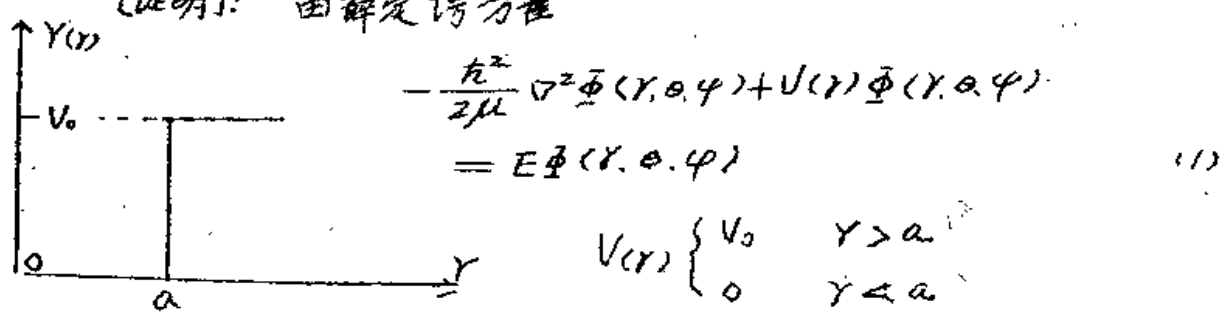 [证明]: 由解定谔方程
Y(r)
V₀
0
a
r
-ħ²/2μ ∇²Φ(r,θ,φ)+V(r)Φ(r,θ,φ)
= EΦ(r.θ.φ) (1)
V(r) { V₀ r>a
0 r<a